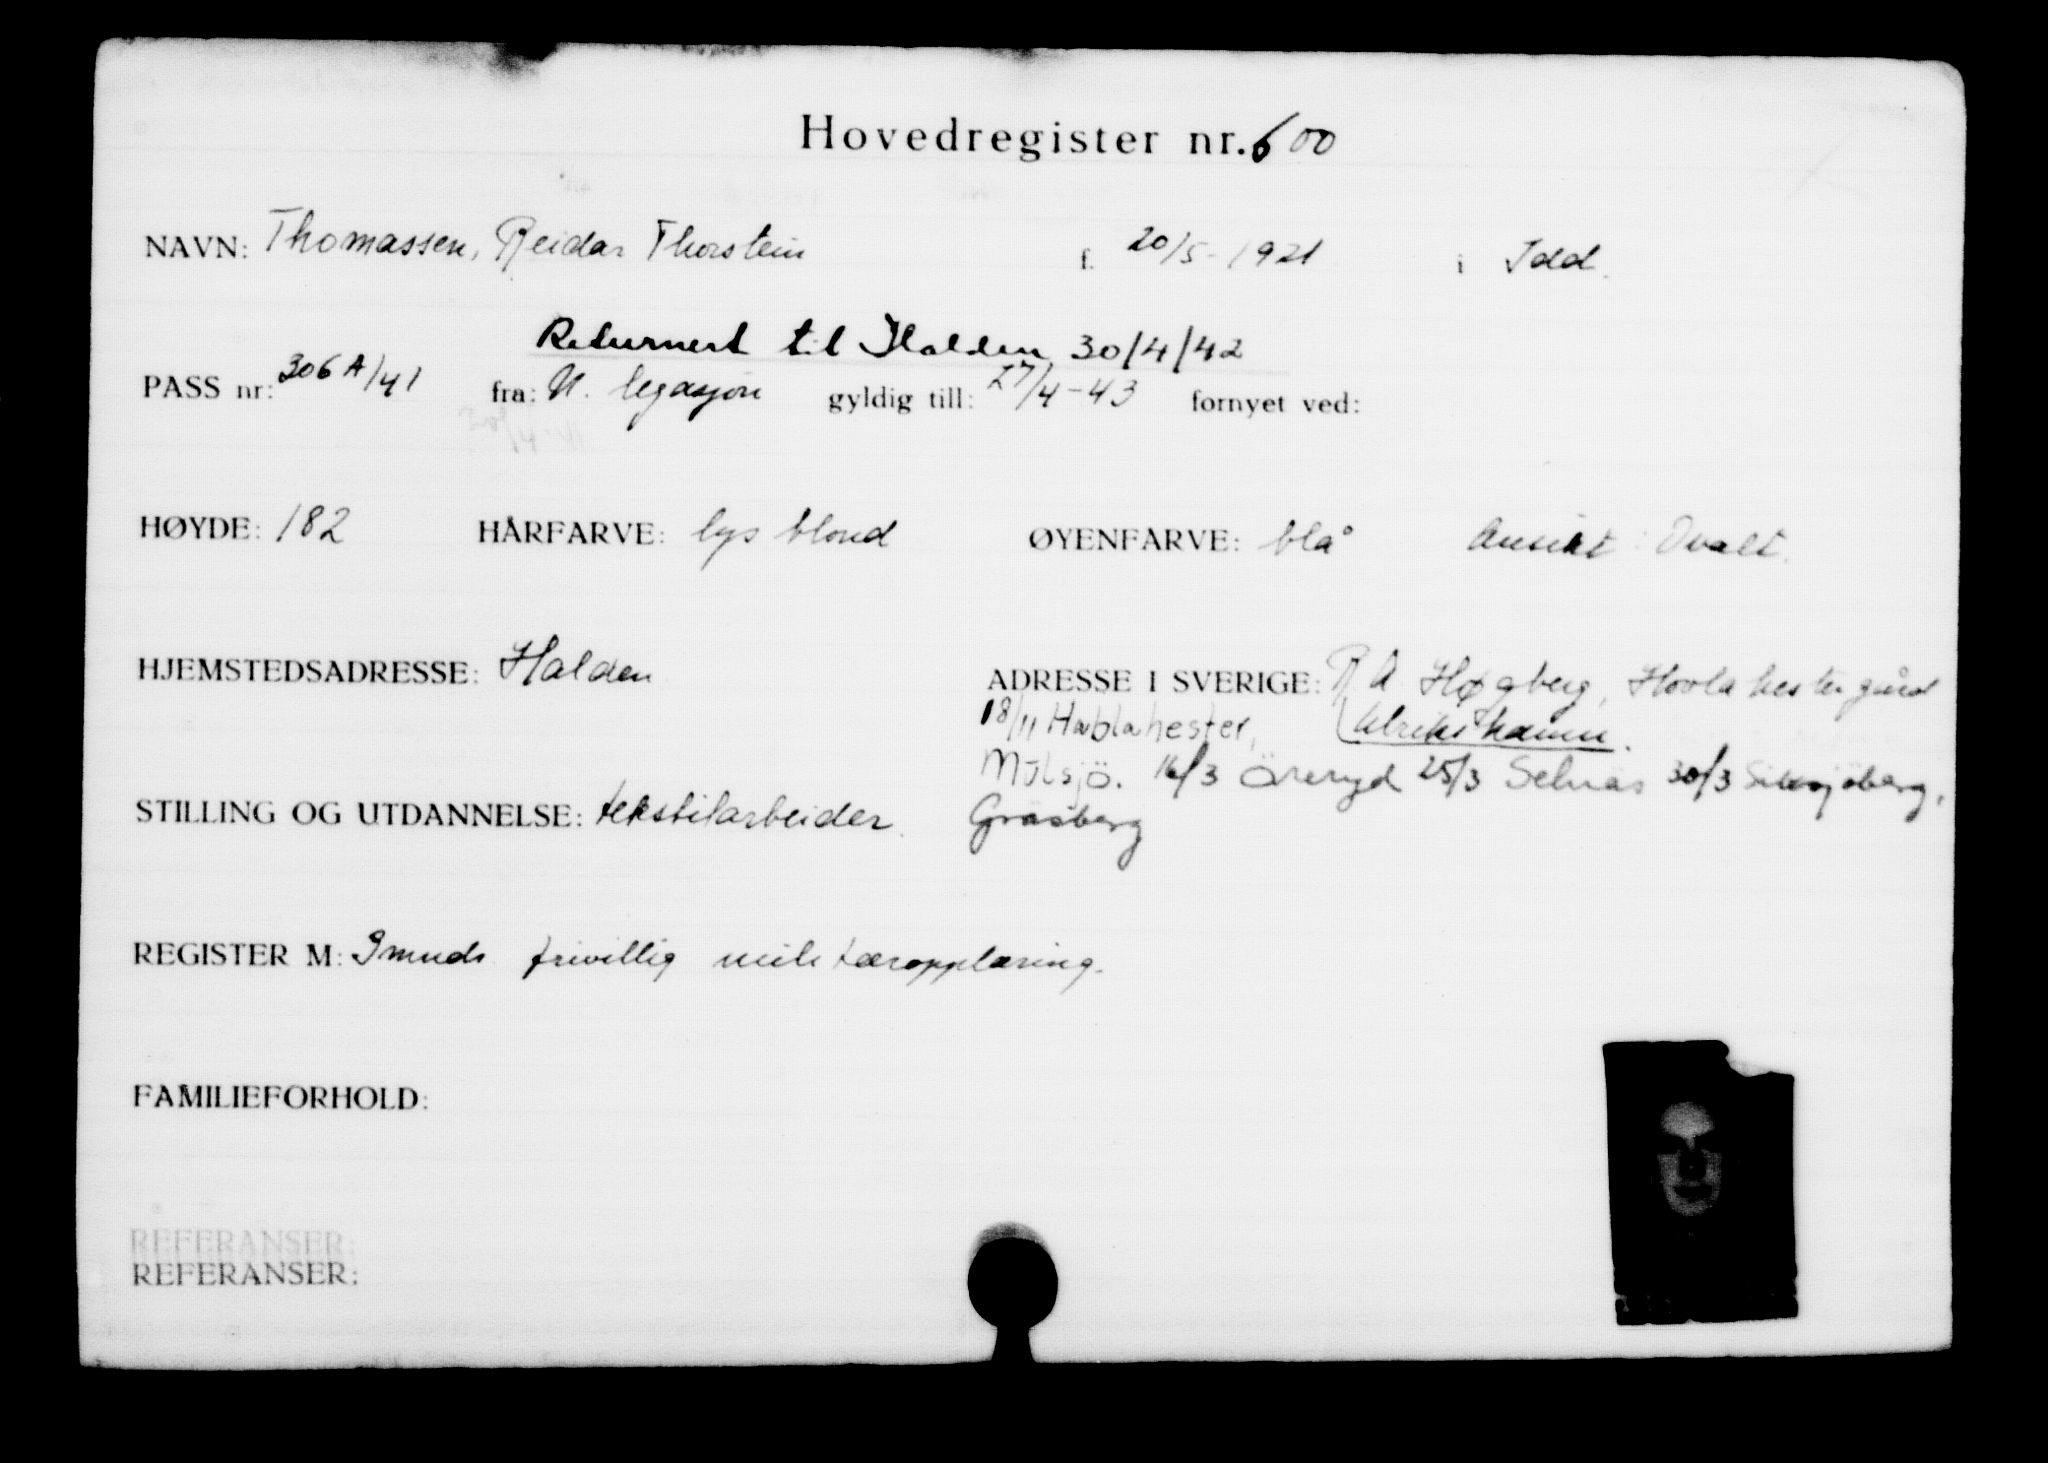 Hovedregister nr. 600
NAVN: Thomassen, Reidar Thorstein f. 20/5-1921 i Idd.
Returnert til Halden 30/4/42
PASS nr: 306 A/41 fra: N. legasjon gyldig till: 27/4-43 fornyet ved:
HØYDE: 182 HÅRFARVE: lys blond ØYENFARVE: blå Ansikt: Ovalt.
HJEMSTEDSADRESSE: Halden ADRESSE I SVERIGE: R A Høgberg, Hovla hester gård
18/11 Hablahester, Ulrikshamn.
Mulsjö. 16/3 Öreryd 25/3 Selnäs 30/3
STILLING OG UTDANNELSE: tekstilarbeider. Gräsberg
REGISTER M: 9 mnds frivillig militæropplæring.
FAMILIEFORHOLD:
REFERANSER:
REFERANSER: